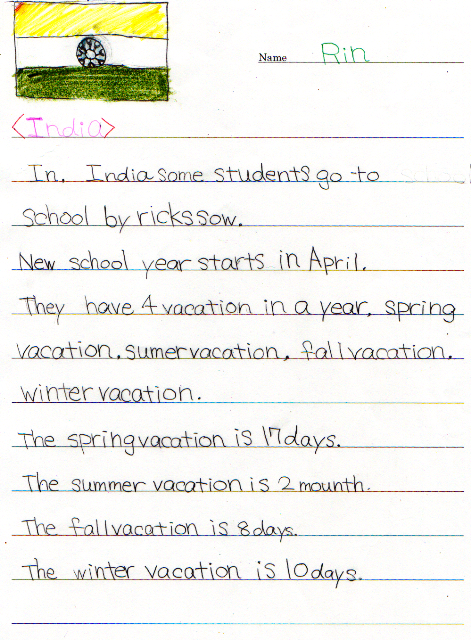 Name Rin
<India>
In. India some students go to
school by rickssow.
New school year starts in April.
They have 4 vacation in a year. spring
vacation. sumer vacation, fall vacation.
winter vacation.
The spring vacation is 17 days.
The summer vacation is 2 mounth.
The fall vacation is 8 days.
The winter vacation is 10 days.